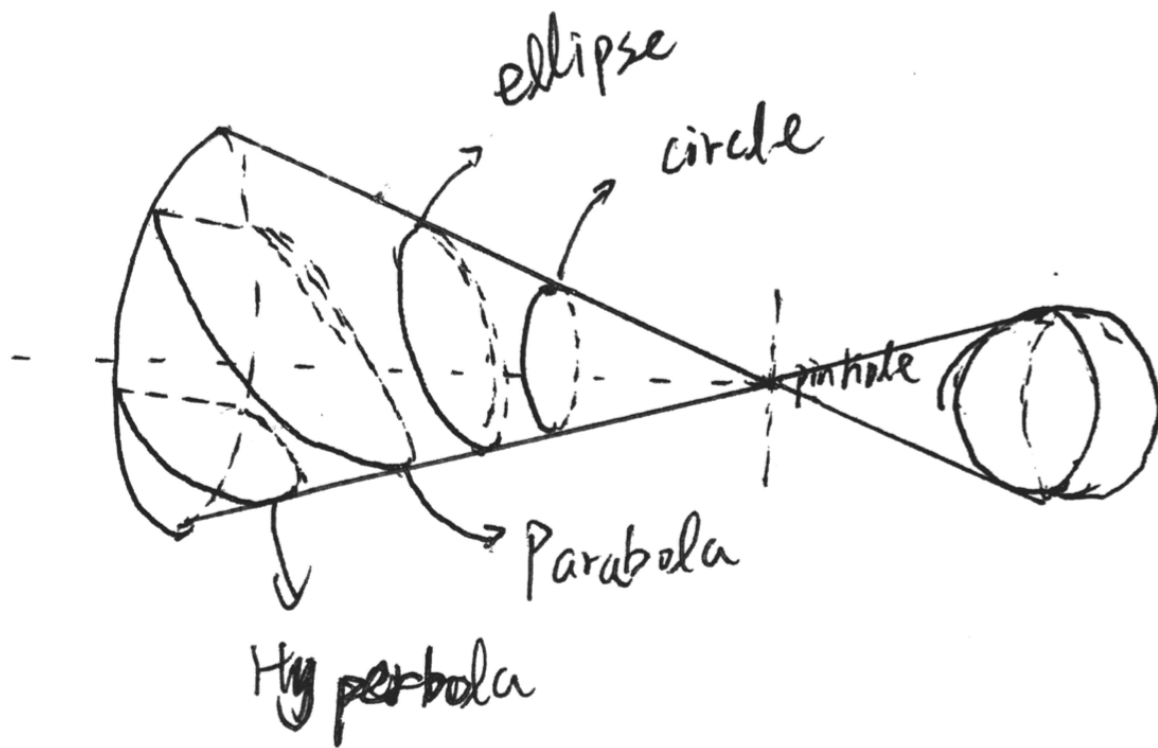 ellipse
circle
pinhole
Parabola
Hyperbola